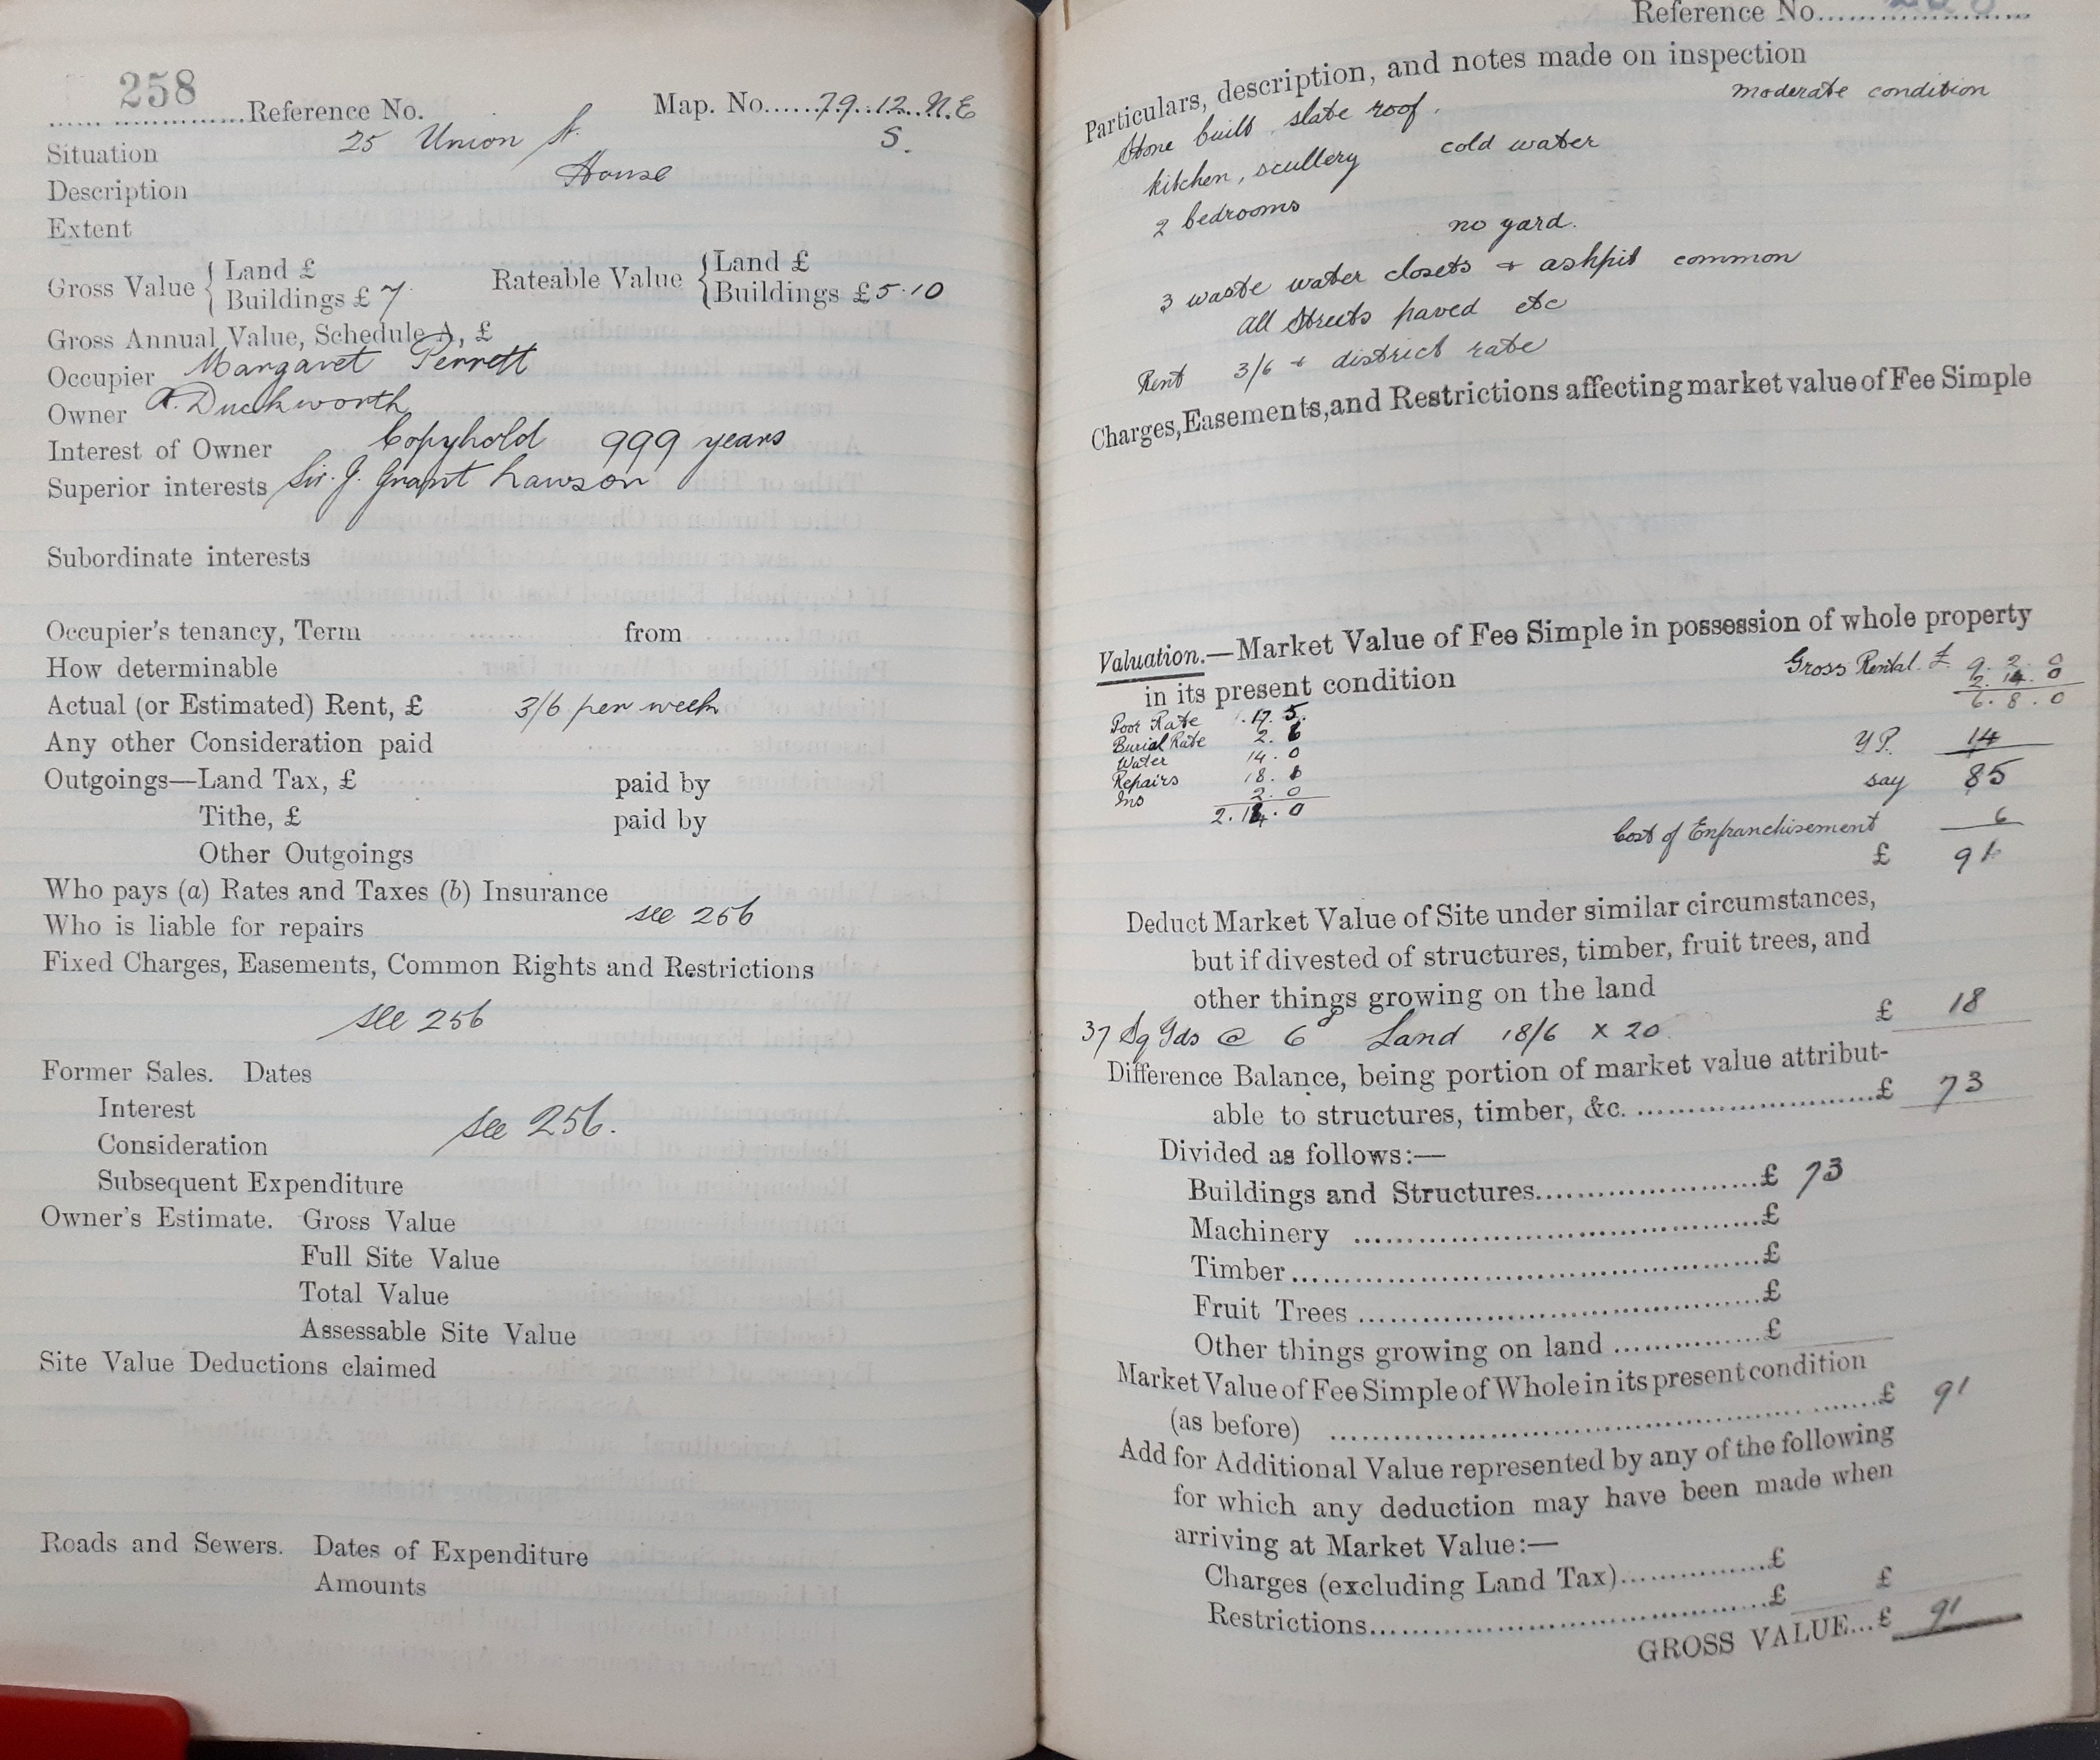 258
...... ..............Reference No. Map. No......79..12..N.E
Situation 25 Union St. S.
Description House
Extent
Gross Value { Land £ Rateable Value { Land £
Buildings £ 7 Buildings £ 5.10
Gross Annual Value, Schedule A, £
Occupier Margaret Perrett
Owner A. Duckworth
Interest of Owner Copyhold 999 years
Superior interests Sir. J. Grant Lawson
Subordinate interests
Occupier's tenancy, Term from
How determinable
Actual (or Estimated) Rent, £ 3/6 per week
Any other Consideration paid
Outgoings—Land Tax, £ paid by
Tithe, £ paid by
Other Outgoings
Who pays (a) Rates and Taxes (b) Insurance
Who is liable for repairs see 256
Fixed Charges, Easements, Common Rights and Restrictions
see 256
Former Sales. Dates
Interest
Consideration see 256.
Subsequent Expenditure
Owner's Estimate. Gross Value
Full Site Value
Total Value
Assessable Site Value
Site Value Deductions claimed
Roads and Sewers. Dates of Expenditure
Amounts
Reference No.......................
Particulars, description, and notes made on inspection
Stone built, slate roof. moderate condition
kitchen, scullery cold water
2 bedrooms no yard.
3 waste water closets + ashpit common
all Streets paved etc
Rent 3/6 + district rate
Charges, Easements, and Restrictions affecting market value of Fee Simple
Valuation.—Market Value of Fee Simple in possession of whole property
in its present condition Gross Rental. £ 9. 2. 0
2. 14. 0
6. 8. 0
Poor Rate .17. 5.
Burial Rate 2.
Water 14. 0
Repairs 18.
Ins 2. 0
2. 14. 0
Y.P. 14
say 85
Cost of Enfranchisement 6
£ 91
Deduct Market Value of Site under similar circumstances,
but if divested of structures, timber, fruit trees, and
other things growing on the land £ 18
37 Sq Yds @ 6d Land 18/6 x 20.
Difference Balance, being portion of market value attribut-
able to structures, timber, &c. ..........................£ 73
Divided as follows:—
Buildings and Structures.......................£ 73
Machinery .........................................£
Timber...............................................£
Fruit Trees ........................................£
Other things growing on land ...............£
Market Value of Fee Simple of Whole in its present condition
(as before) ..................................................£ 91
Add for Additional Value represented by any of the following
for which any deduction may have been made when
arriving at Market Value:—
Charges (excluding Land Tax)................£
Restrictions.........................................£ £
GROSS VALUE...£ 91